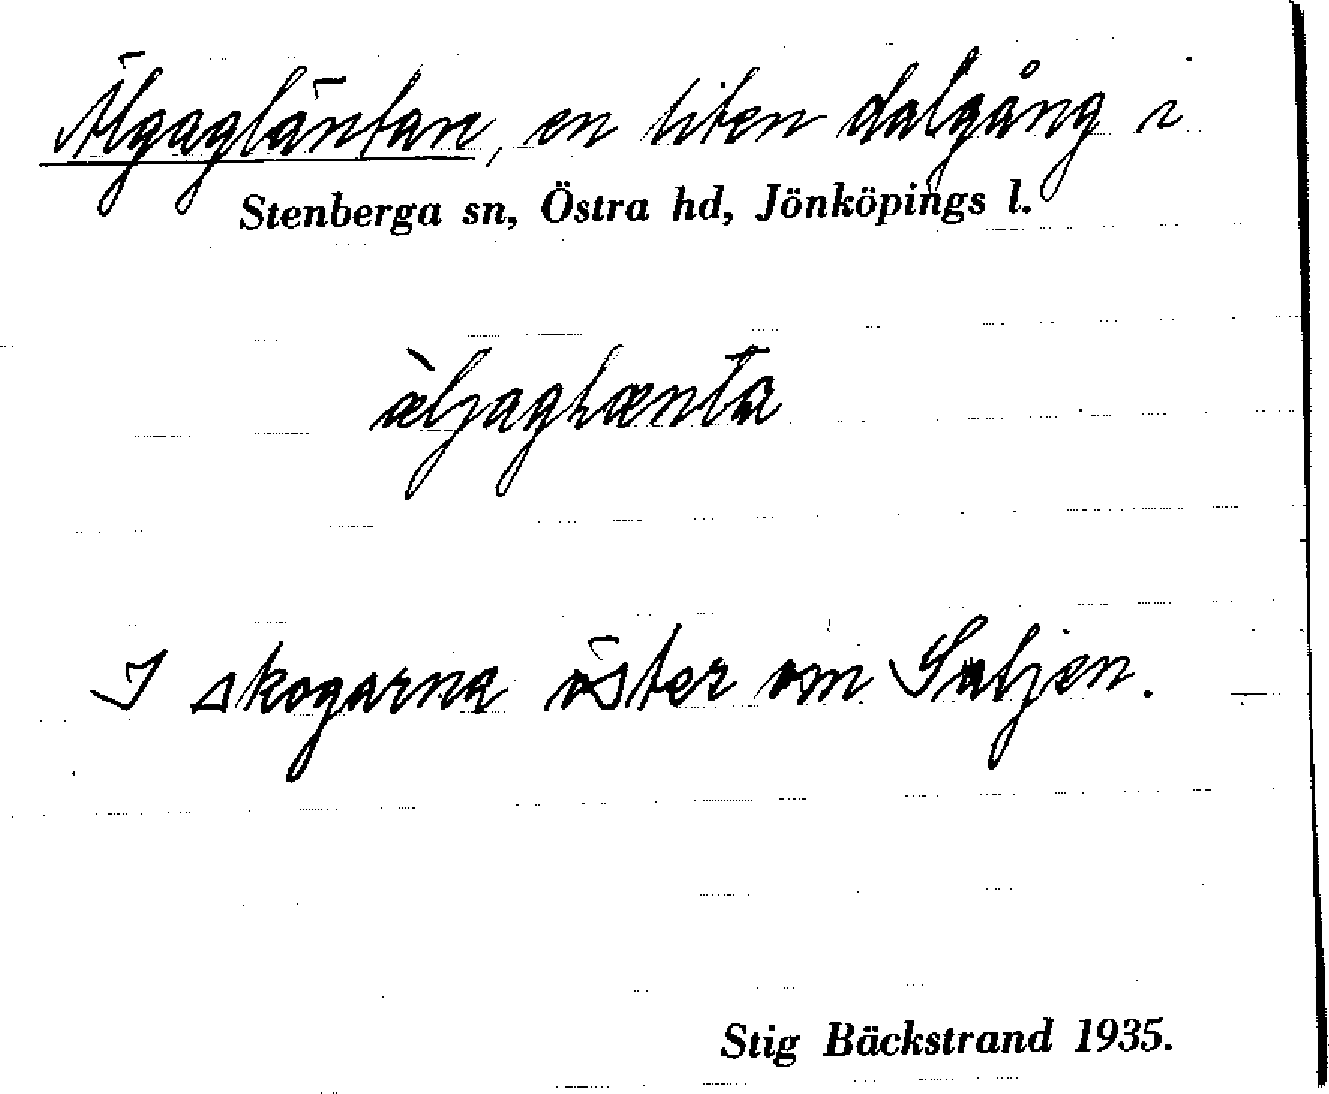 Älgagläntan, en liten dalgång i
Stenberga sn, Östra hd, Jönköpings l.
æ̀ljaglænta
I skogarna öster om Saljen.
Stig Bäckstrand 1935.